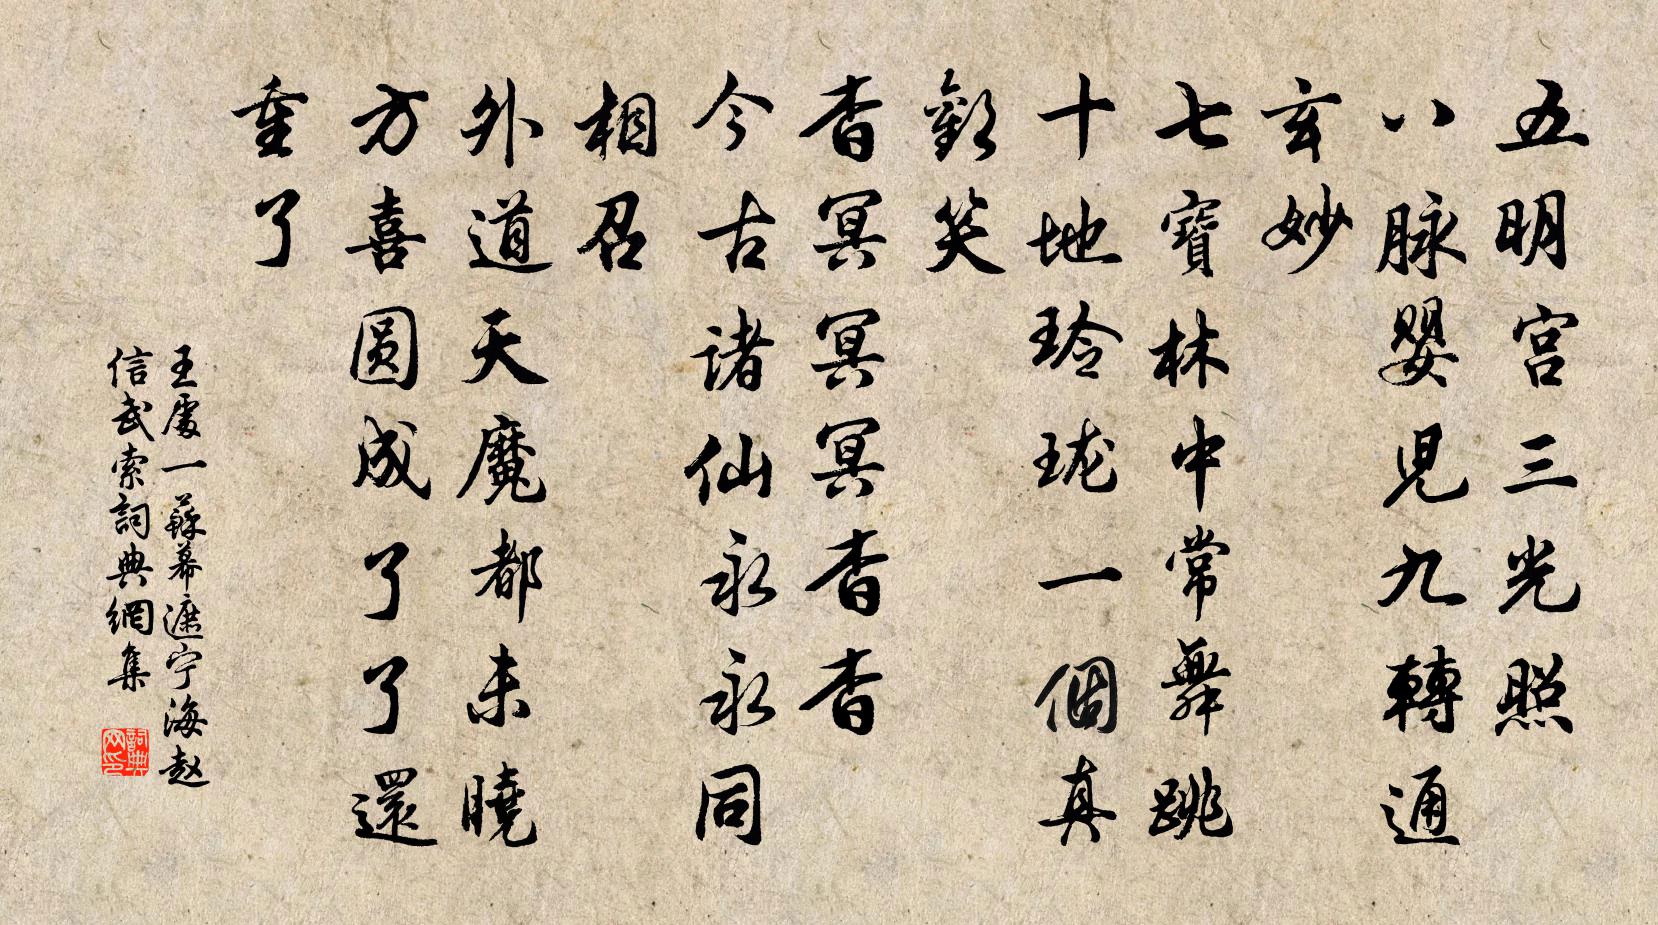 五明宫三光照
八脉嬰兒九轉通
玄妙
七寶林中常舞跳
十地玲珑一個真
歡笑
杳冥冥冥杳杳
今古诸仙永永同
相召
外道天魔都未曉
方喜圆成了了還
重了
王處一蘇幕遮宁海赵
信武索詞典網集
詞典网印